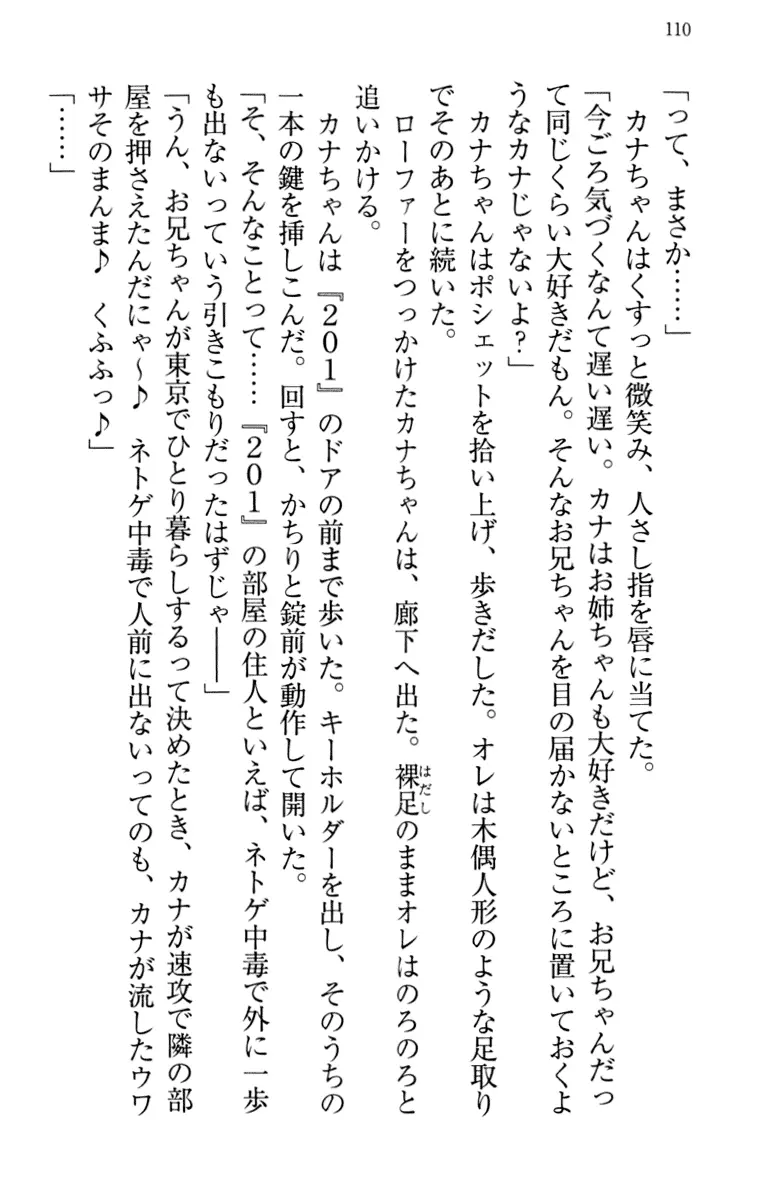 110
「って、まさか……」
カナちゃんはくすっと微笑み、人さし指を唇に当てた。
「今ごろ気づくなんて遅い遅い。カナはお姉ちゃんも大好きだけど、お兄ちゃんだっ
て同じくらい大好きだもん。そんなお兄ちゃんを目の届かないところに置いておくよ
うなカナじゃないよ?」
カナちゃんはポシェットを拾い上げ、歩きだした。オレは木偶人形のような足取り
でそのあとに続いた。
ローファーをつっかけたカナちゃんは、廊下へ出た。裸足のままオレはのろのろと
はだし
追いかける。
カナちゃんは『201』のドアの前まで歩いた。キーホルダーを出し、そのうちの
一本の鍵を挿しこんだ。回すと、かちりと錠前が動作して開いた。
「そ、そんなことって……『201』の部屋の住人といえば、ネトゲ中毒で外に一歩
も出ないっていう引きこもりだったはずじゃ――」
「うん、お兄ちゃんが東京でひとり暮らしするって決めたとき、カナが速攻で隣の部
屋を押さえたんだにゃ～♪ ネトゲ中毒で人前に出ないってのも、カナが流したウワ
サそのまんま♪ くふふっ♪」
「……」